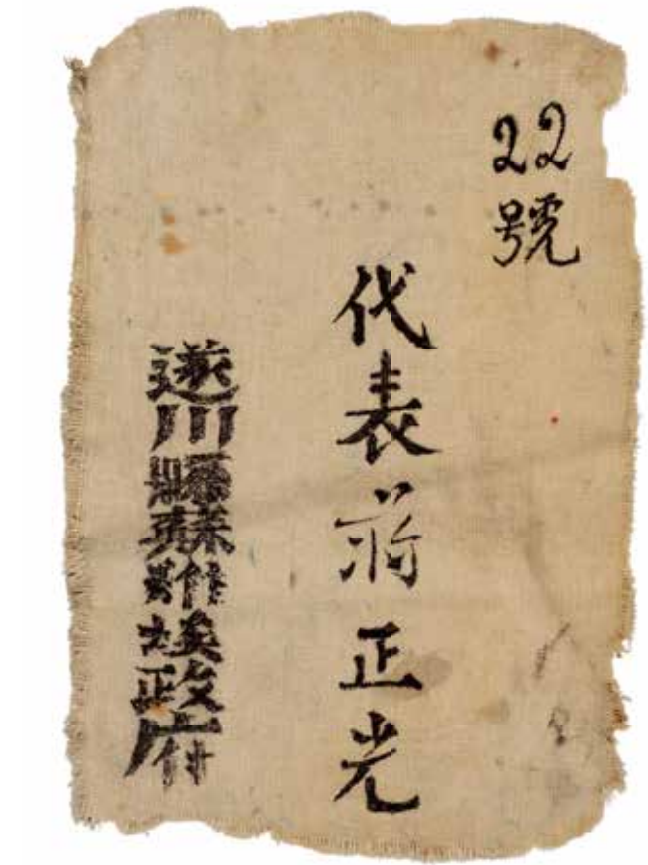 22號
代表蒋正光
遂川縣蘇維埃政府